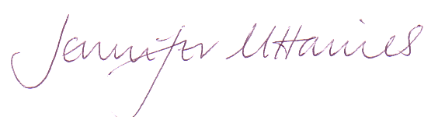 Jennifer M Haines